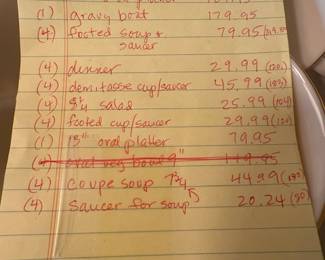 (1) gravy boat 179.95
(4) footed soup + 79.95
saucer
(4) dinner 29.99 (120)
(4) demitasse cup/saucer 45.99 (183)
(4) 8¼ salad 25.99 (104)
(4) footed cup/saucer 29.99 (120)
(1) 15th oval platter 79.95
(1) oval veg bowl 9" 119.95
(4) coupe soup 7¾ 44.99
(4) saucer for soup 20.24 (80)